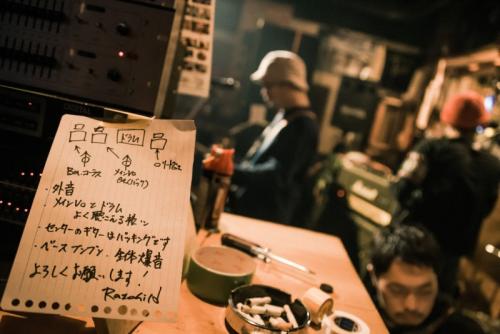 ドラム
Ba.コーラス
メインVo
・外音
メインVoとドラム
よく聴こえる様に
・センターのギターはバッキングです
・ベースブンブン 全体爆音
よろしくお願いします!
Marshall